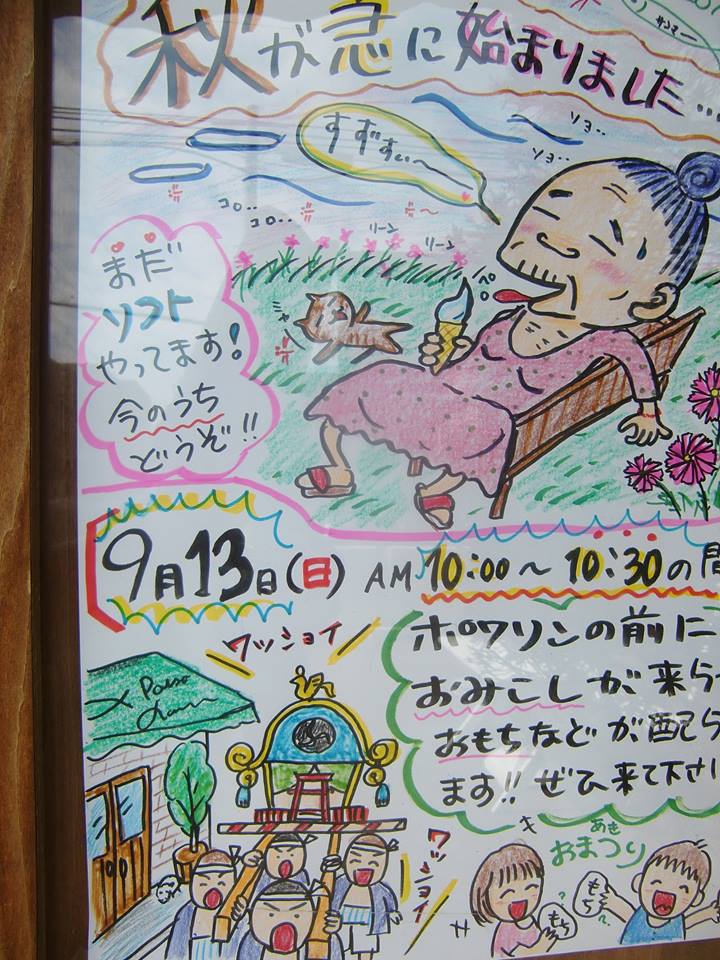 サンマー
秋が急に始まりました…
すずすぃ〜
ソヨ‥
ソヨ‥
コロ‥
コロ‥
リーン
リーン
ペロ
まだ
ソフト
やってます!
今のうち
どうぞ!!
9月13日(日) AM 10:00〜10:30の間
ワッショイ
ポワソンの前に
おみこしが来ら
おもちなどが配ら
ます!! ぜひ来て下さい
ワッショイ
あき
おまつり
もち
もち